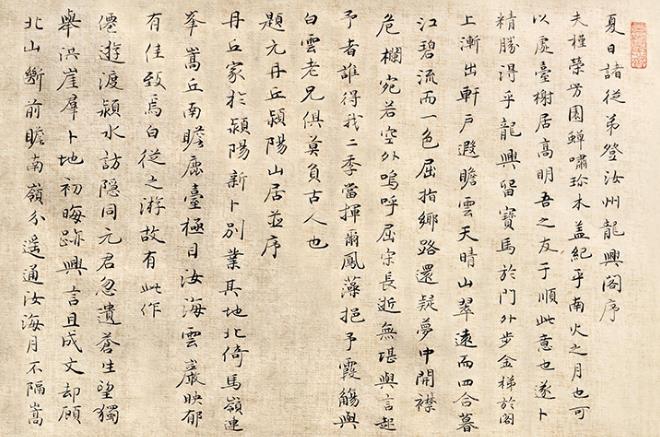 夏日諸從弟登汝州龍興閣序
夫槿榮芳園蟬嘯珍木盖紀乎南火之月也可
以處臺榭居高明吾之友于順此意也遂卜
精勝得乎龍興留寶馬於門外步金梯於閣
上漸出軒戶遐瞻雲天晴山翠遠而四合暮
江碧流而一色屈指鄉路還疑夢中開襟
危欄宛若空外嗚呼屈宋長逝無堪與言起
予者誰得我二季當揮爾鳳藻挹予霞觴與
白雲老兄俱莫負古人也
題元丹丘潁陽山居並序
丹丘家於潁陽新卜別業其地北倚馬嶺連
峯嵩丘南瞻鹿臺極目汝海雲巖映郁
有佳致焉白從之游故有此作
僊遊渡潁水訪隱同元君忽遺蒼生望獨
與洪崖羣卜地初晦跡興言且成文却顧
北山斷前瞻南嶺分遥通汝海月不隔嵩